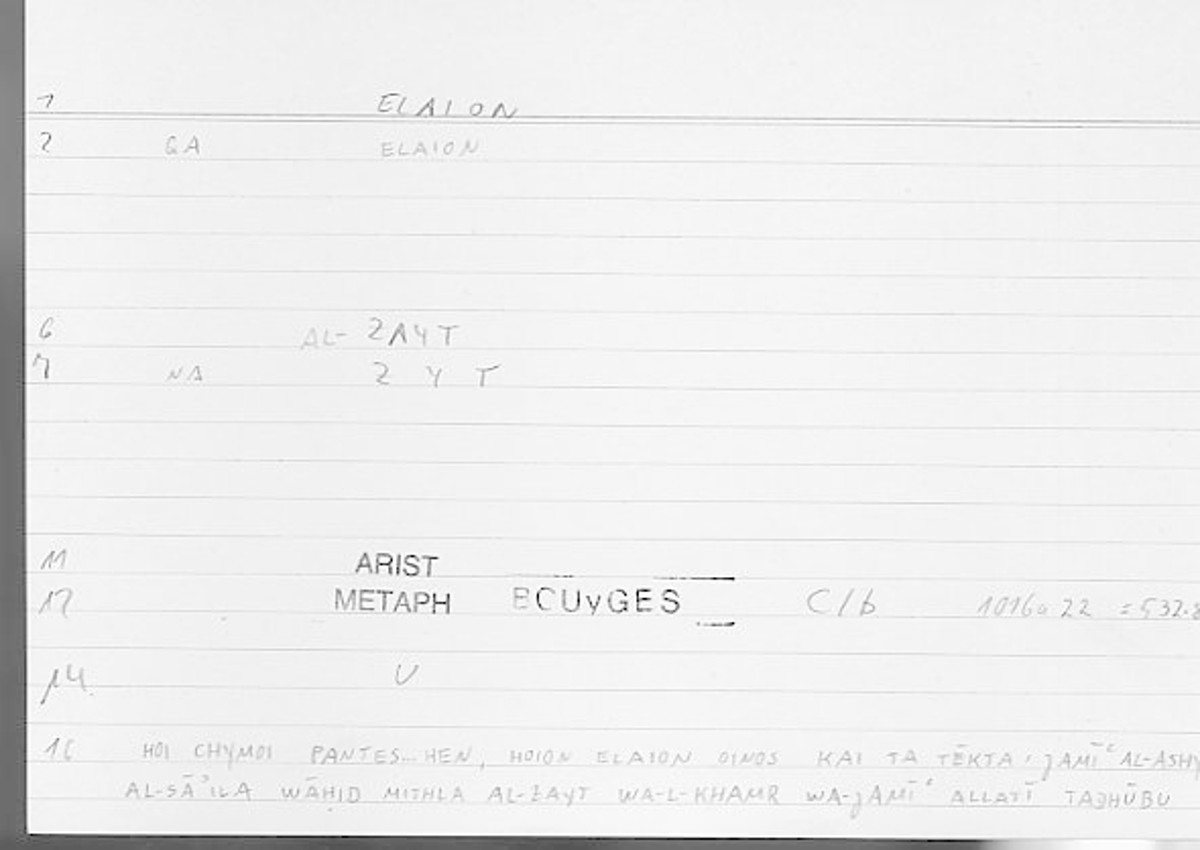 1 ELAION
2 GA ELAION
6 AL-ZAYT
7 NA Z Y T
11 ARIST
12 METAPH BOUYGES C/b 1016a22 =532.8
14 U
16 HOI CHYMOI PANTES... HEN, HOION ELAION OINOS KAI TA TĒKTA, JAMĪʿ AL-ASHY
AL-SĀʾILA WĀHID MITHLA AL-ZAYT WA-L-KHAMR WA-JAMĪʿ ALLATĪ TADHŪBU